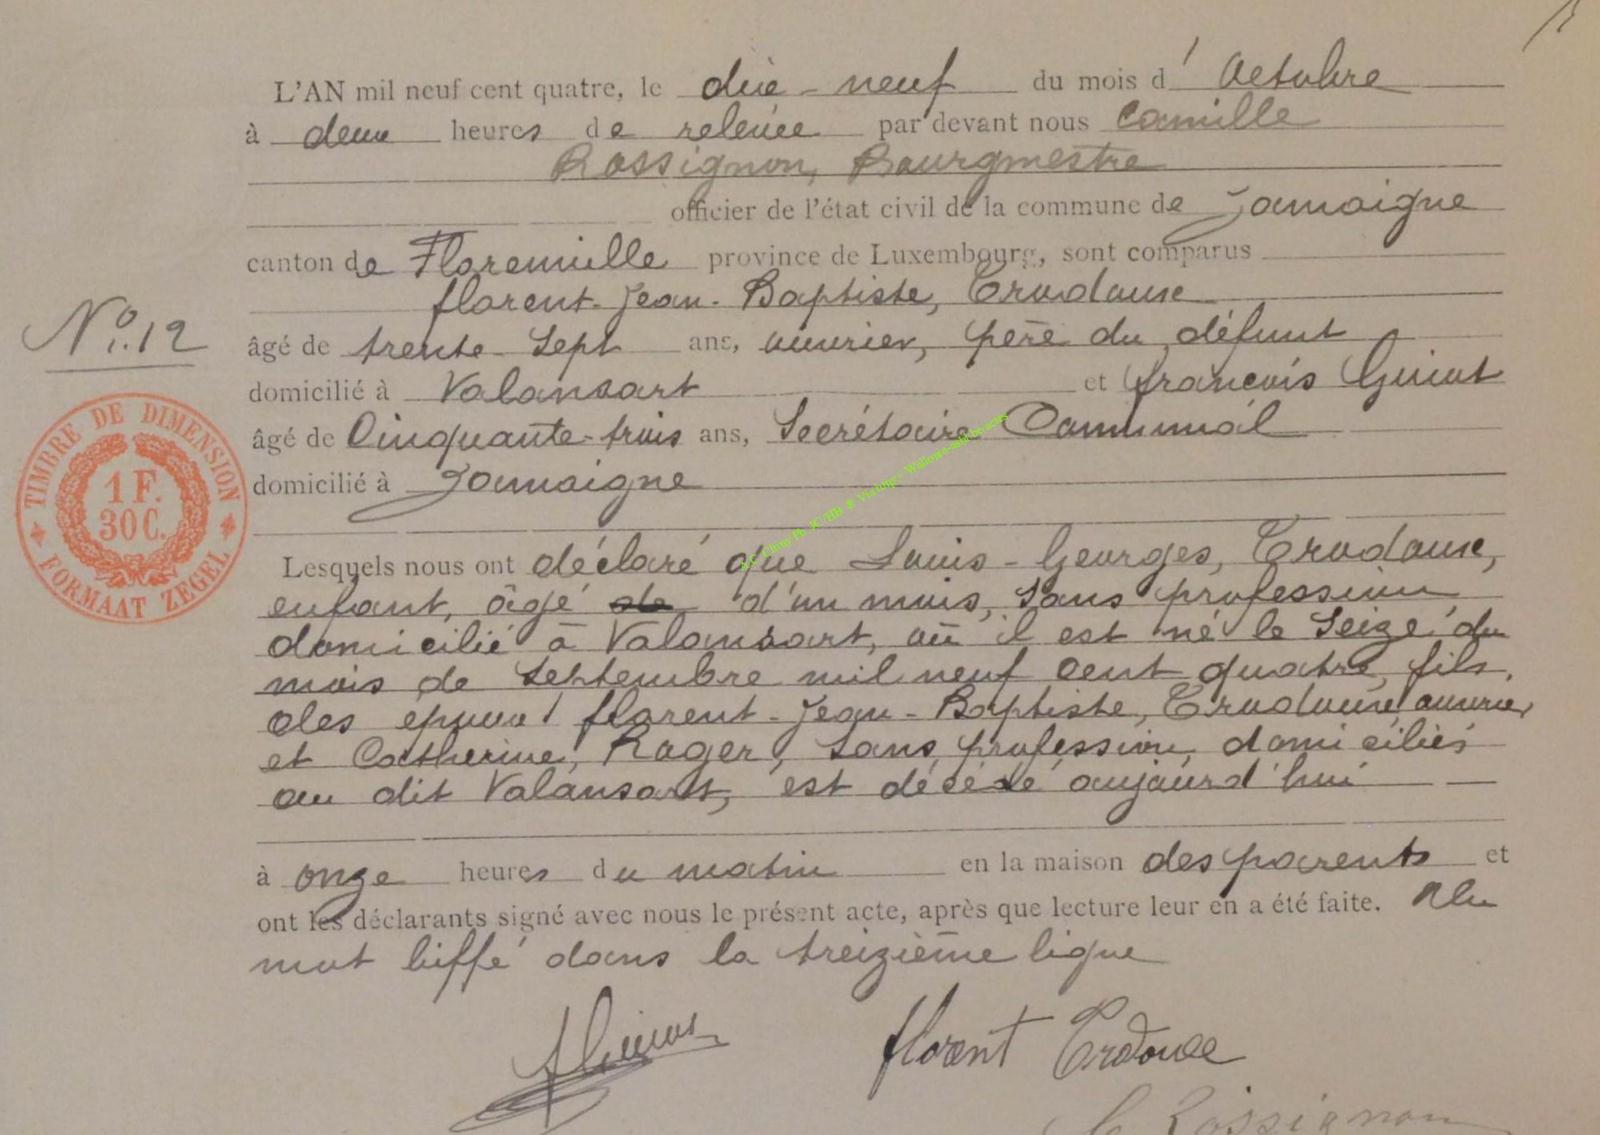 L'AN mil neuf cent quatre, le dix-neuf du mois d'Octobre
à deux heures de relevée par devant nous Camille
Rossignon, Bourgmestre
officier de l'état civil de la commune de Jamoigne
canton de Florenville province de Luxembourg, sont comparus
florent-Jean-Baptiste, Crudoux
N° 12
âgé de trente-sept ans, ouvrier, père du défunt
domicilié à Valansart et françois Guiot
âgé de Cinquante-trois ans, Secrétaire Communal
domicilié à Jamoigne
TIMBRE DE DIMENSION
1 F.
30 C.
FORMAAT ZEGEL
Lesquels nous ont déclaré que Louis-Georges,
enfant, âgé de d'un mois, sans profession
domicilié à Valansart, où il est né le Seize du
mois de Septembre mil neuf cent quatre, fils
des époux florent-Jean-Baptiste, ouvrier
et Catherine, Roger, sans profession, domiciliés
au dit Valansart, est décédé aujourd'hui
à onze heures du matin en la maison des parents et
ont les déclarants signé avec nous le présent acte, après que lecture leur en a été faite. Un
mot biffé dans la treizième ligne
florent
C Rossignon